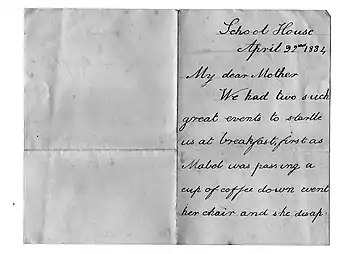 School House
April 22nd 1884
My dear Mother
We had two such
great events to startle
us at breakfast, first as
Mabel was passing a
cup of coffee down went
her chair and she disap-